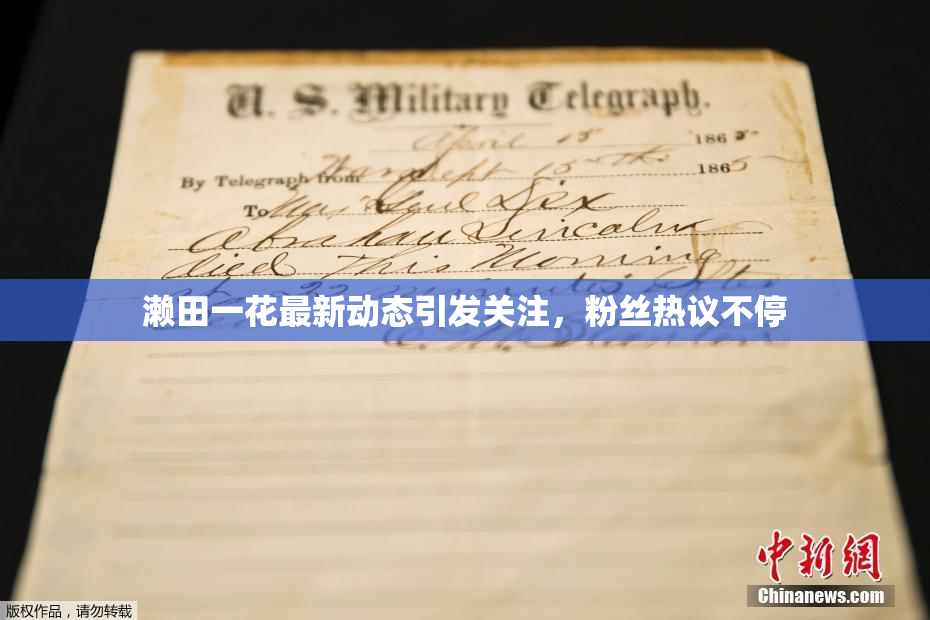 U. S. Military Telegraph.
April 15 1865
By Telegraph from War Dept 15th 1865
To Maj Genl Dix
Abraham Lincoln
died This Morning
at 22 minutes after
濑田一花最新动态引发关注，粉丝热议不停
E. M. Stanton
中新网
Chinanews.com
版权作品，请勿转载